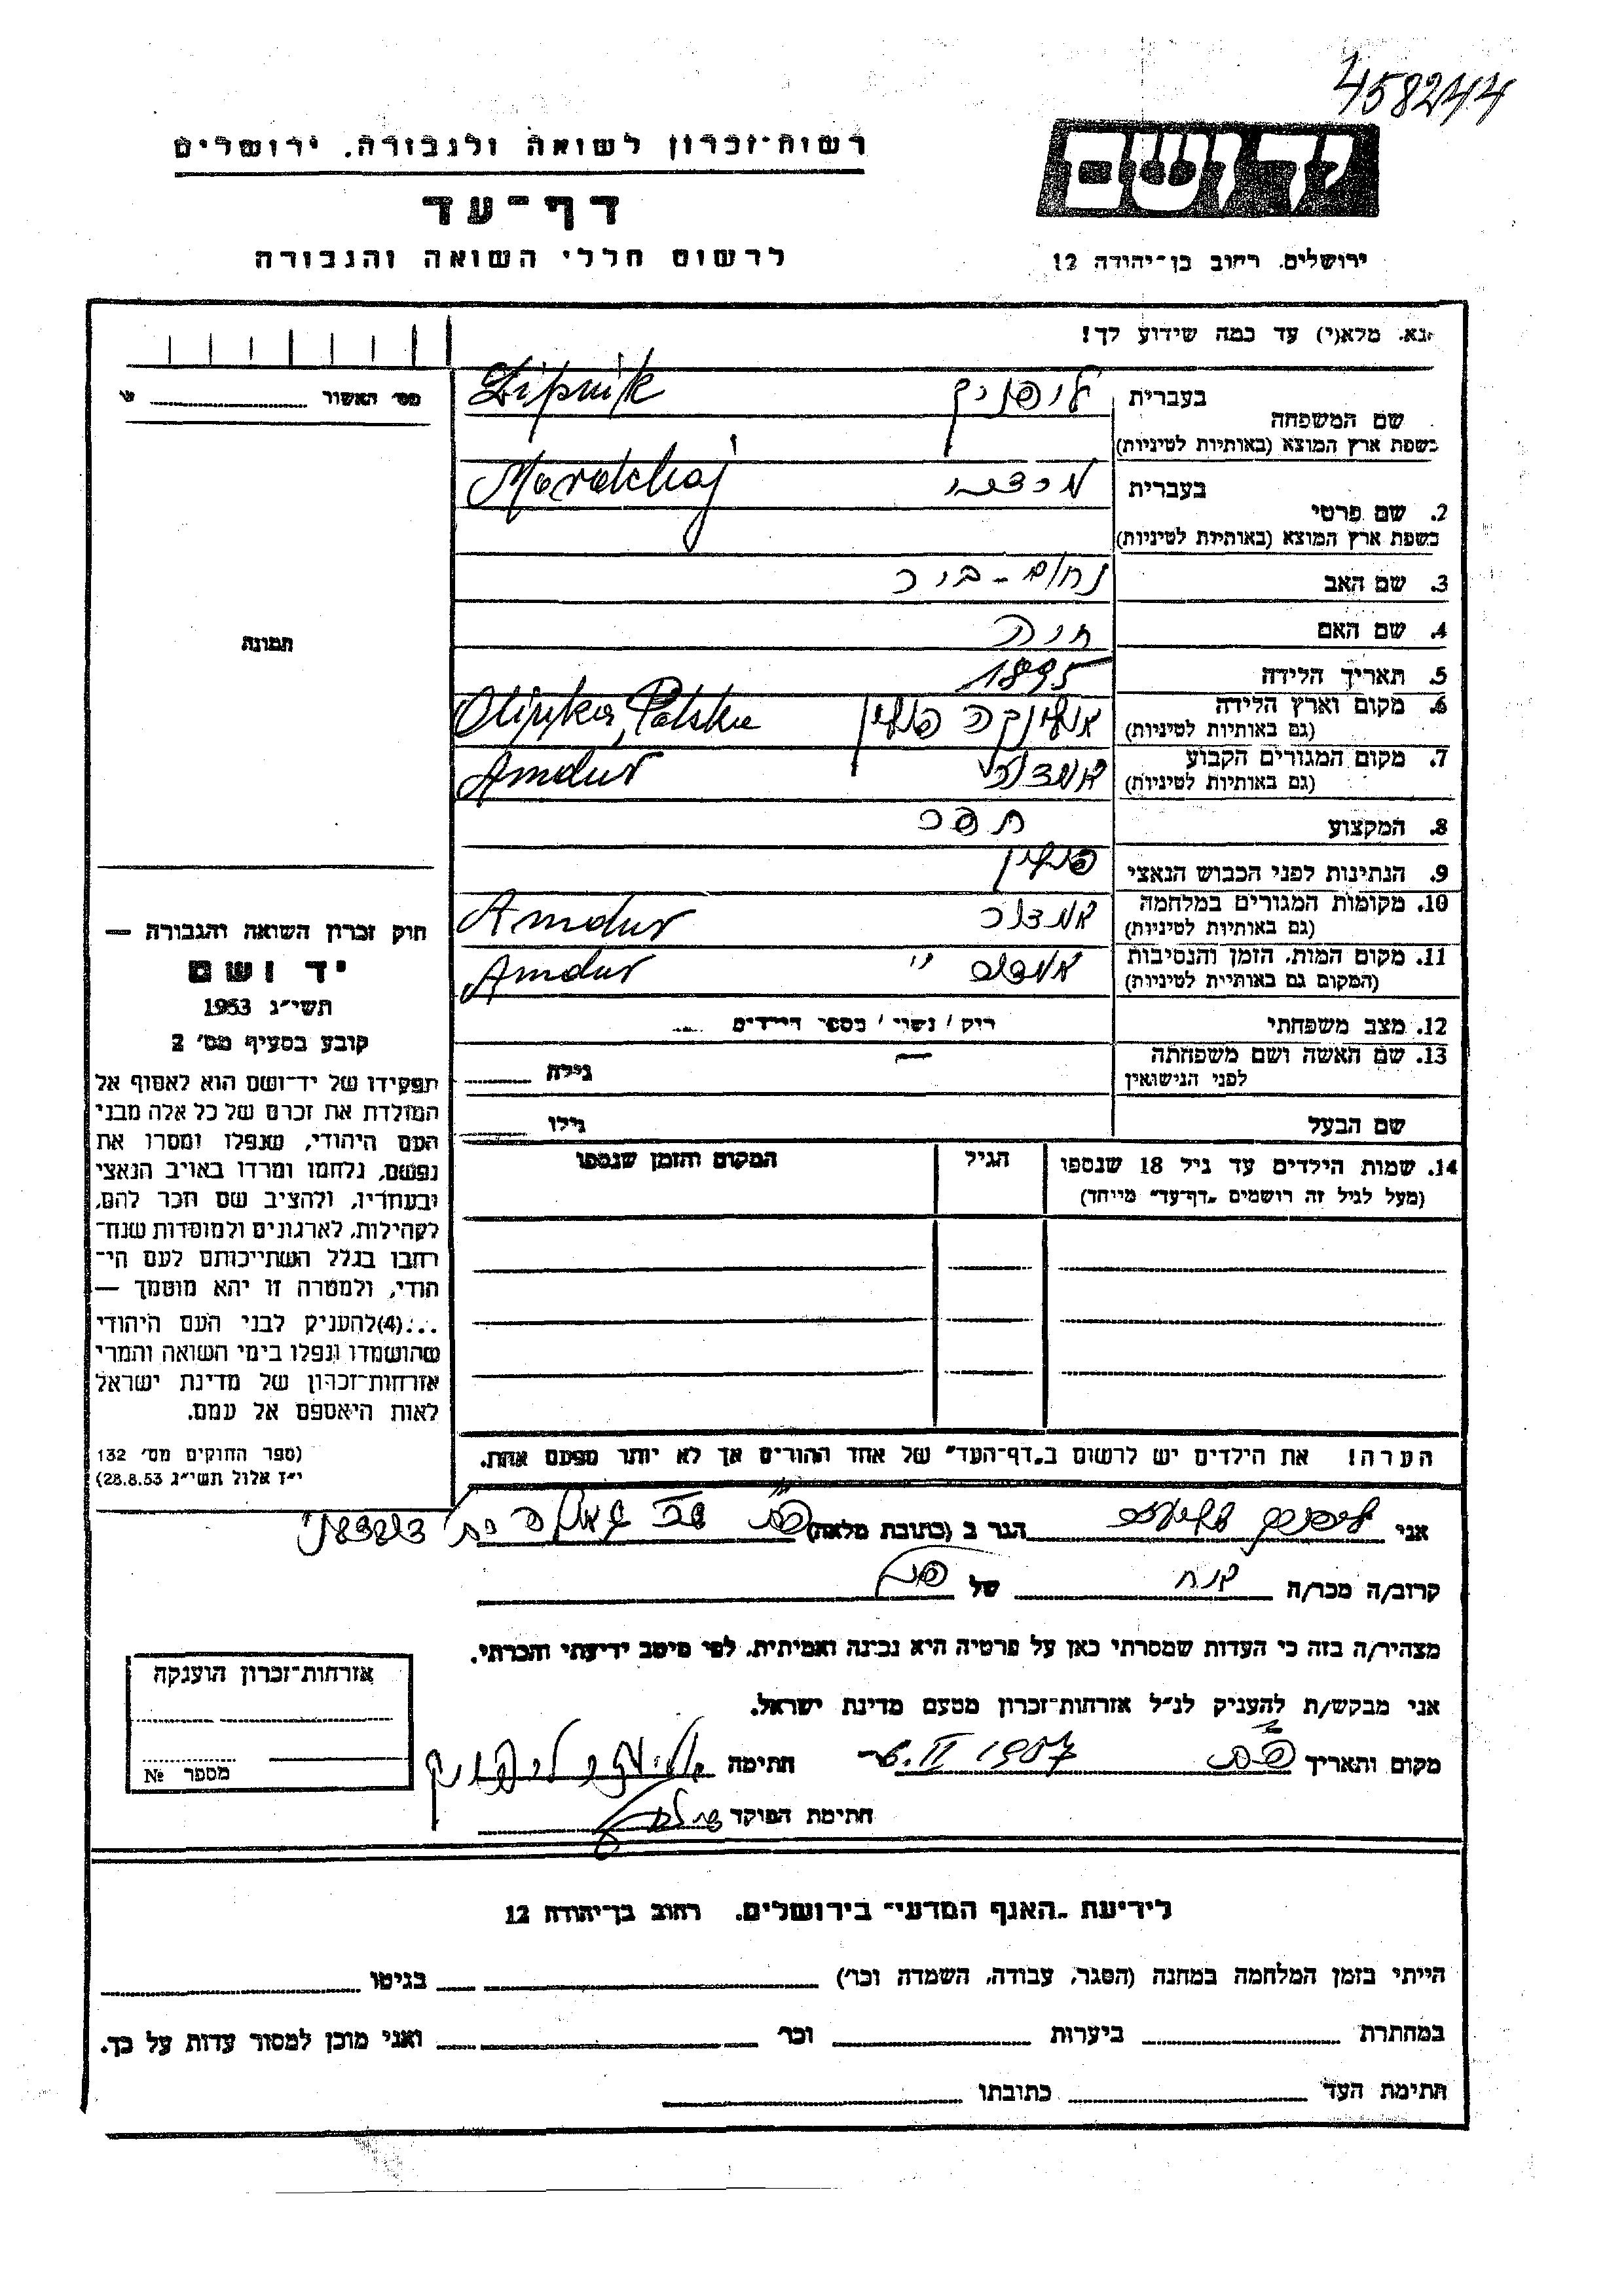 4582144
יד ושם
רשות-זכרון לשואה ולגבורה. ירושלים
דף-עד
לרשום חללי השואה והגבורה
ירושלים. רחוב בן-יהודה 12
נא. מלא(י) עד כמה שידוע לך!
מס׳ האשור
שם המשפחה
בעברית
ליפניק
Lipnik
בשפת ארץ המוצא (באותיות לטיניות)
2. שם פרטי
בעברית
מרדכי
Mordchaj
בשפת ארץ המוצא (באותיות לטיניות)
3. שם האב
נחום-בי ר
4. שם האם
חיה
5. תאריך הלידה
1895
6. מקום וארץ הלידה
(גם באותיות לטיניות)
פולין
Polska
7. מקום המגורים הקבוע
(גם באותיות לטיניות)
אמדור
Amdur
8. המקצוע
תפר
9. הנתינות לפני הכבוש הנאצי
פולין
10. מקומות המגורים במלחמה
(גם באותיות לטיניות)
אמדור
Amdur
11. מקום המות, הזמן והנסיבות
(המקום גם באותיות לטיניות)
אמדור
Amdur
12. מצב משפחתי
רוק / נשוי / מספר הילדים
13. שם האשה ושם משפחתה
לפני הנישואין
גילה
שם הבעל
גילו
14. שמות הילדים עד גיל 18 שנספו
(מעל לגיל זה רושמים „דף-עד״ מיוחד)
הגיל
המקום והזמן שנספו
הערה! את הילדים יש לרשום ב„דף-העד״ של אחד ההורים אך לא יותר מפעם אחת.
תמונה
חוק זכרון השואה והגבורה —
יד ושם
תשי״ג 1953
קובע בסעיף מס׳ 2
תפקידו של יד-ושם הוא לאסוף אל
המולדת את זכרם של כל אלה מבני
העם היהודי, שנפלו ומסרו את
נפשם, נלחמו ומרדו באויב הנאצי
ובעוזריו, ולהציב שם וזכר להם,
לקהילות, לארגונים ולמוסדות שנח-
רחבו בגלל השתייכותם לעם הי-
הודי, ולמטרה זו יהא מוסמך —
...(4)להעניק לבני העם היהודי
שהושמדו ונפלו בימי השואה והמרי
אזרחות-זכרון של מדינת ישראל
לאות היאספם אל עמם.
(ספר החוקים מס׳ 132
י״ז אלול תשי״ג 28.8.53)
אני
ליפניק
הגר ב (כתובת מלאה)
קרוב/ה מכר/ה
אח
של
מצהיר/ה בזה כי העדות שמסרתי כאן על פרטיה היא נכונה ואמיתית, לפי מיטב ידיעתי והכרתי.
אני מבקש/ת להעניק לנ״ל אזרחות-זכרון מטעם מדינת ישראל.
מקום ותאריך
6.II 1957
חתימה
ליפניק
חתימת הפוקד
אזרחות-זכרון הוענקה
מספר №
לידיעת „האגף המדעי״ בירושלים. רחוב בן-יהודה 12
הייתי בזמן המלחמה במחנה (הסגר, עבודה, השמדה וכר׳)
בגיטו
במחתרת
ביערות
וכר׳
ואני מוכן למסור עדות על כך.
חתימת העד
כתובתו